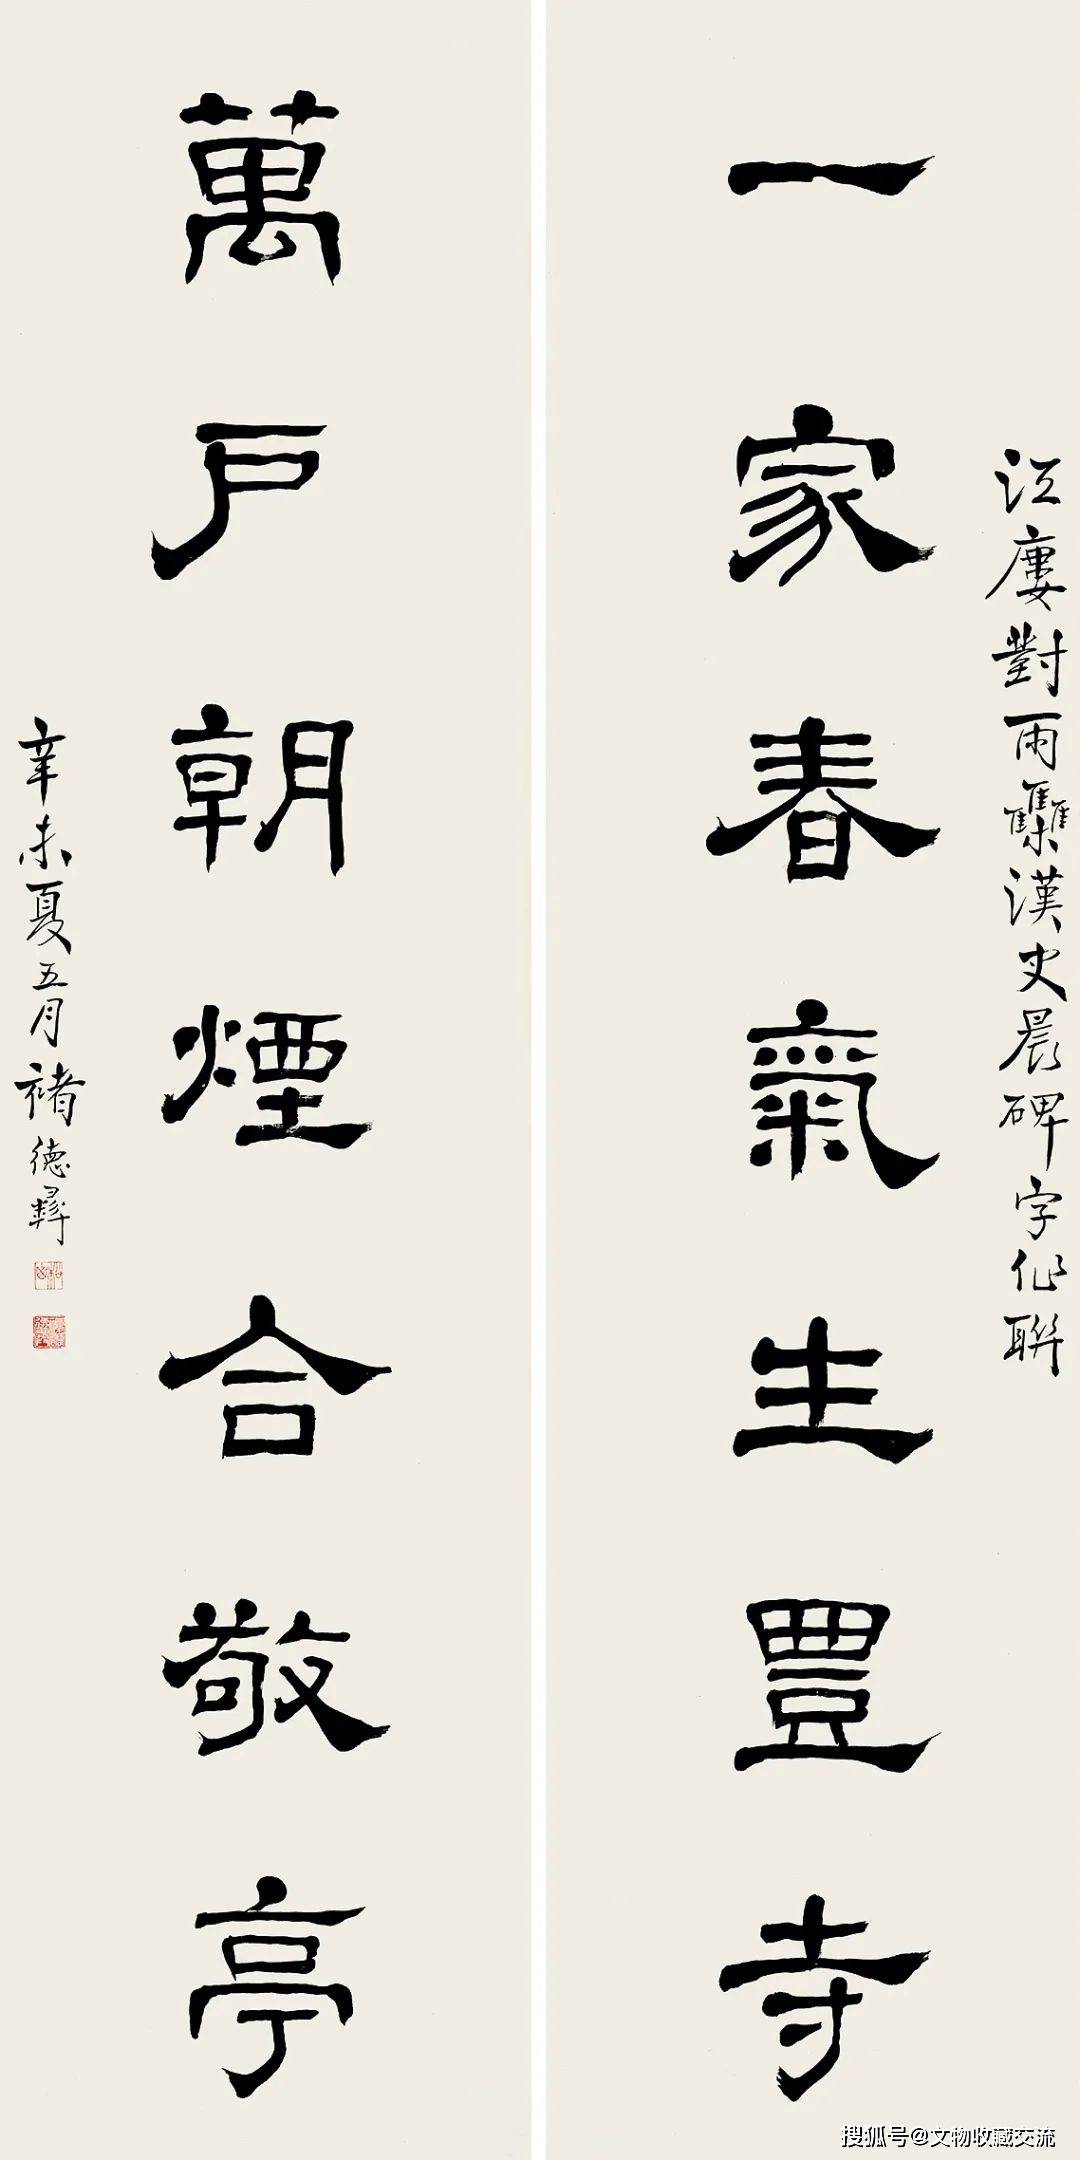 江廔對雨雧漢史晨碑字作聯
一家春氣生豊寺
萬戶朝煙合敬亭
辛未夏五月褚德彝
搜狐号@文物收藏交流